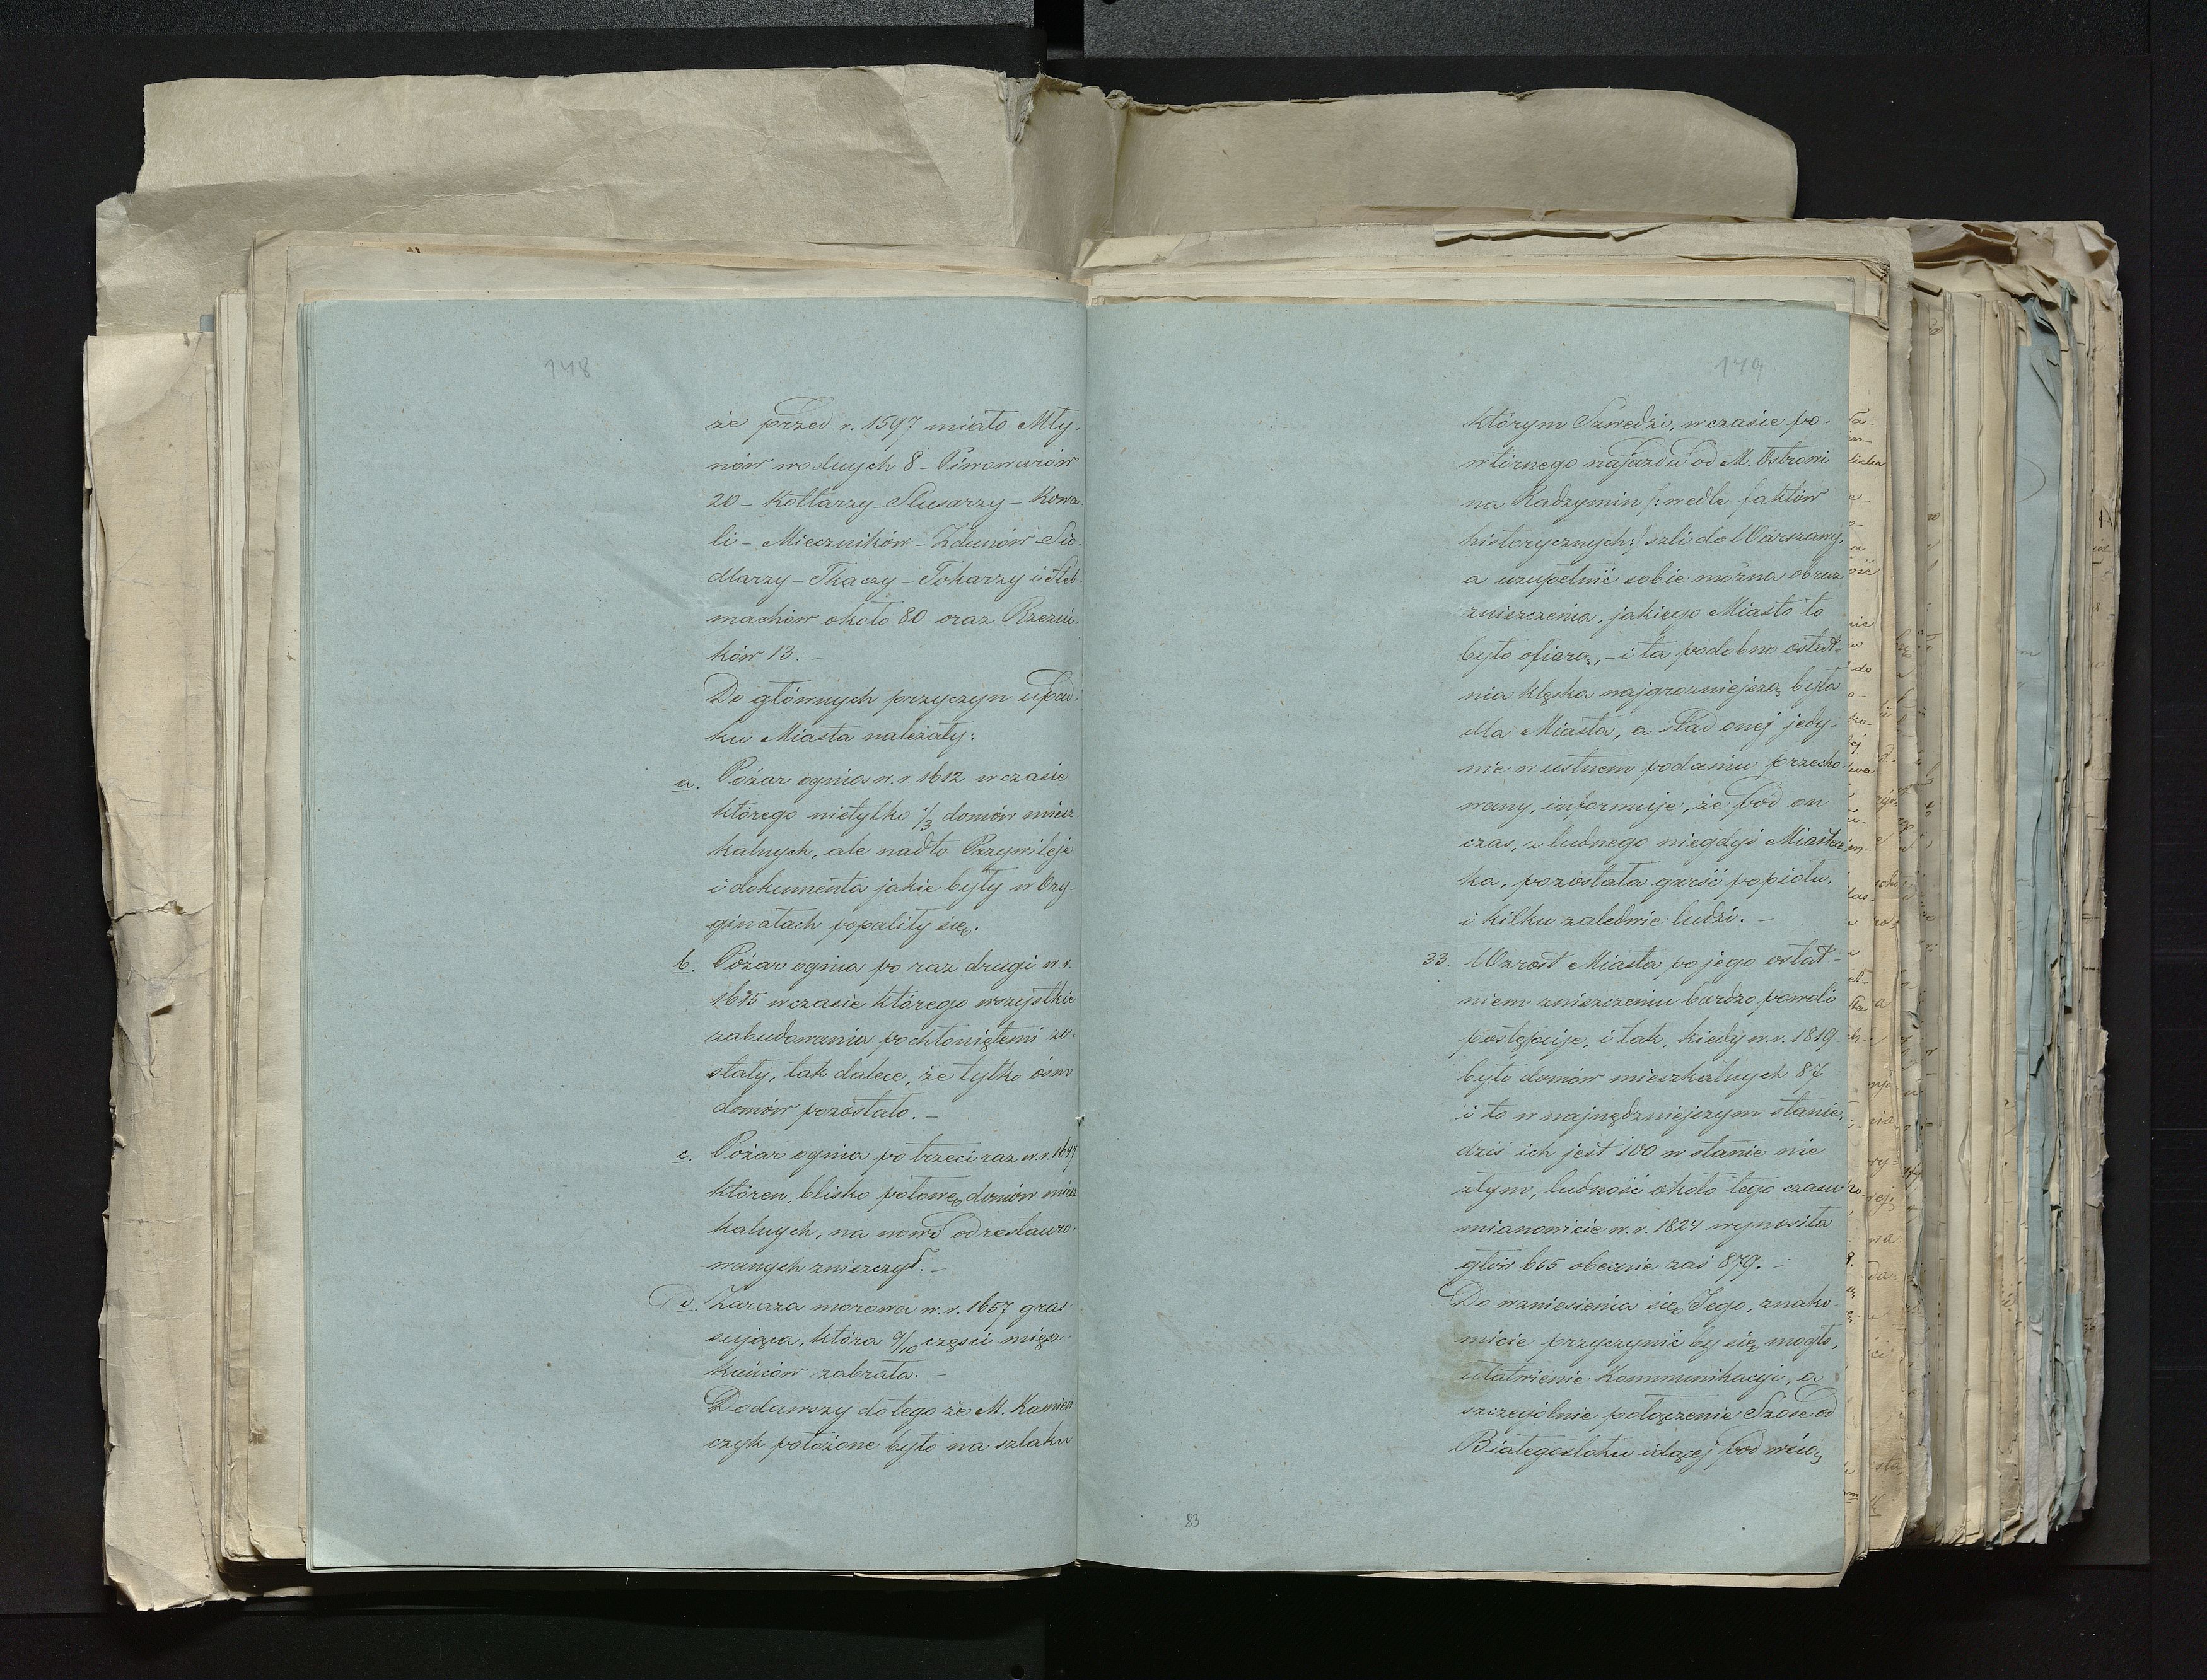 148
że przed r. 1597 miało Mły-
nów wodnych 8 - Piwowarów
20 - Kotlarzy - Slusarzy - Kowa-
li - Mieczników - Zdunów - Sio-
dlarzy - Tkaczy - Tokarzy i Stel-
machów około 80 oraz Rzeźni-
ków 13. -
Do głównych przyczyn upad-
ku Miasta należały:
a. Pożar ognia w r. 1612 w czasie
którego nietylko ⅓ domów miesz
kalnych, ale nadto Przywileje
i dokumenta jakie były w Ory-
ginałach popaliły się.
b. Pożar ognia po raz drugi w r.
1615 w czasie którego wszystkie
zabudowania pochłoniętemi zo-
stały, tak dalece, że tylko ośm
domów pozostało. -
c. Pożar ognia po trzeci raz w r. 1647
któren, blisko połowę domów miesz
kalnych, na nowo odrestauro-
wanych zniszczył. -
d. Zaraza morowa w r. 1657 gras-
sująca, która 9/10 części miesz-
kańców zabrała. -
Dodawszy do tego że M. Kamień
czyk położone było na szlaku
149
którym Szwedzi, w czasie po-
wtórnego najazdu od M. Ostrowi
na Radzymin /: wedle faktów
historycznych :/ szli do Warszawy,
a uzupełnić sobie można obraz
zniszczenia, jakiego Miasto to
było ofiarą, - i ta podobno ostat-
nia klęska najgrozniejszą była
dla Miasta, a ślad onej jedy-
nie w ustnem podaniu przecho-
wany, informuje, że pod on
czas, z ludnego niegdyś Miastecz
ka, pozostała garść popiołu.
i kilku zaledwie ludzi. -
33. Wzrost Miasta po jego ostat-
niem zniszczeniu bardzo powoli
postępuje, i tak, kiedy w r. 1819
było domów mieszkalnych 87
i to w najnędzniejszym stanie,
dziś ich jest 100 w stanie nie
złym, ludność około tego czasu
mianowicie w r. 1824 wynosiła
głów 655 obecnie zaś 879. -
Do wzniesienia się Jego, znako-
micie przyczynić by się mogło,
ułatwienie Kommunikacyi, a
szczególnie połączenie Szose od
Białegostoku idącej pod wsią
83